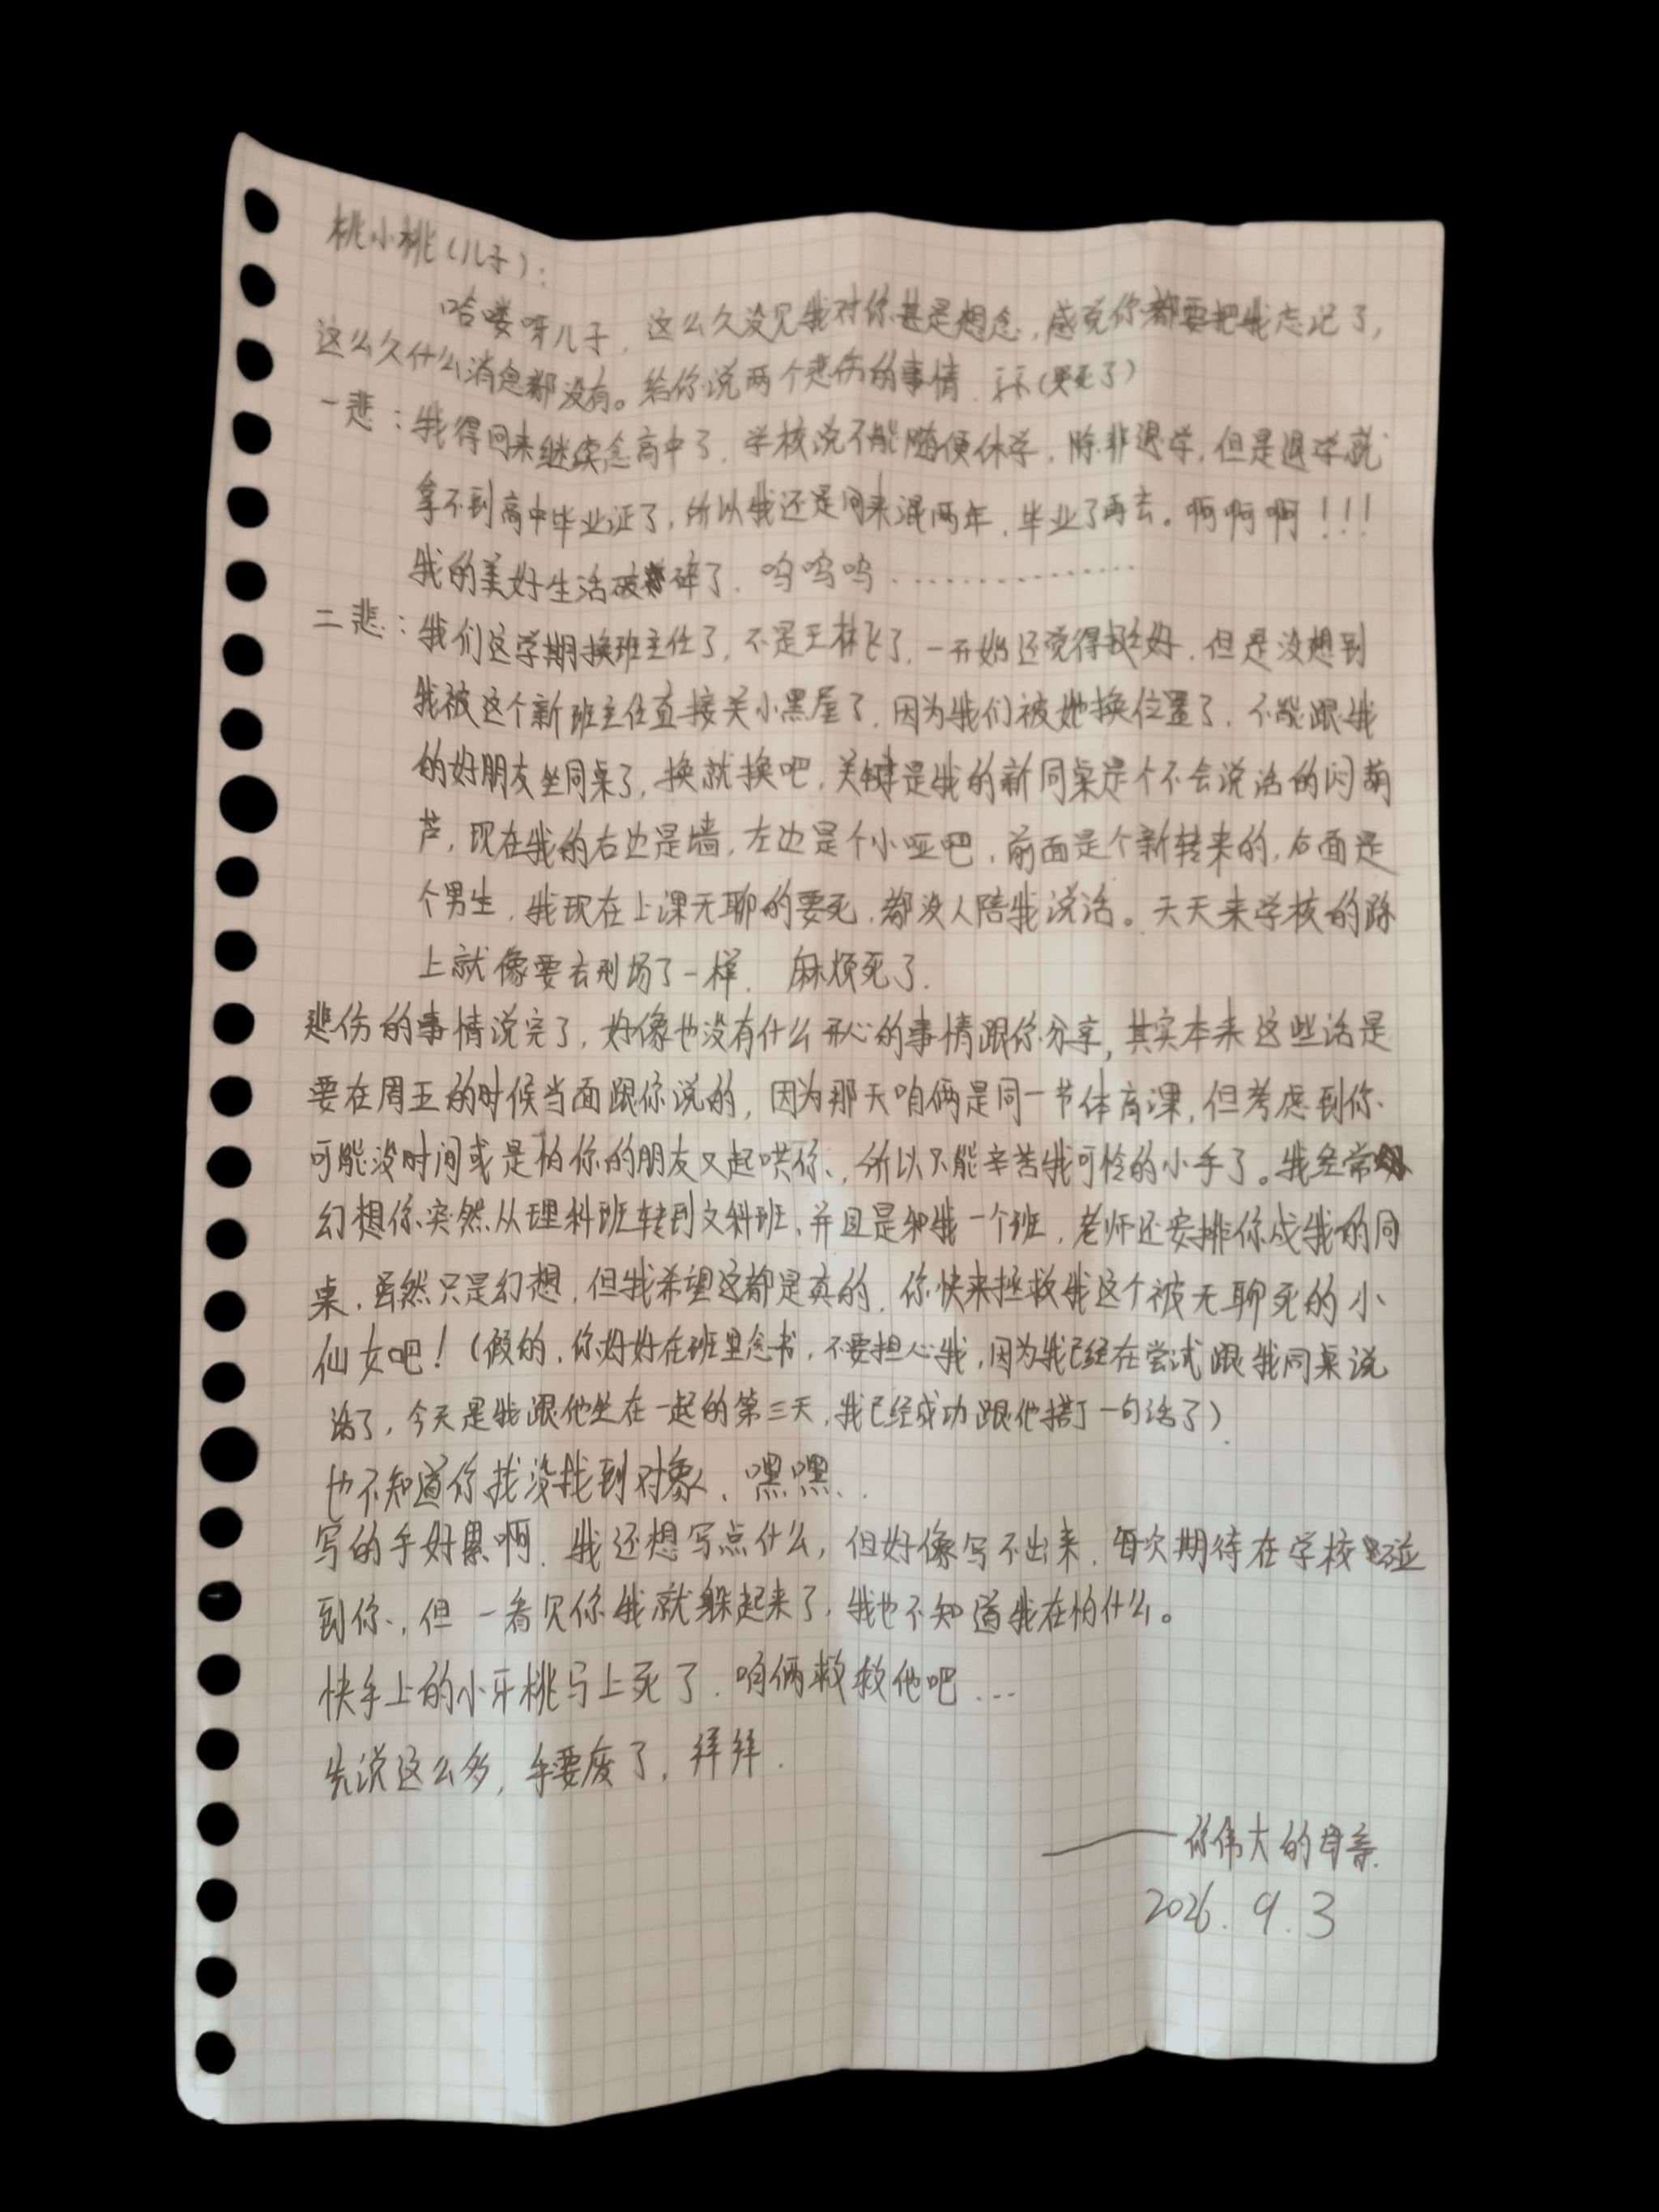 桃小桃(儿子):
哈喽呀儿子,这么久没见我对你甚是想念,感觉你都要把我忘记了,
这么久什么消息都没有。给你说两个悲伤的事情,(哭死了)
一悲:我得回来继续念高中了,学校说不能随便休学,除非退学,但是退学就
拿不到高中毕业证了,所以我还是回来混两年,毕业了再去。啊啊啊!!!
我的美好生活破碎了,呜呜呜..............
二悲:我们这学期换班主任了,不是王林飞了,一开始还觉得挺好,但是没想到
我被这个新班主任直接关小黑屋了,因为我们被她换位置了,不能跟我
的好朋友坐同桌了,换就换吧,关键是我的新同桌是个不会说话的闷葫
芦,现在我的右边是墙,左边是个小哑吧,前面是个新转来的,后面是
个男生,我现在上课无聊的要死,都没人陪我说话。天天来学校的路
上就像要去刑场了一样,麻烦死了.
悲伤的事情说完了,好像也没有什么开心的事情跟你分享,其实本来这些话是
要在周五的时候当面跟你说的,因为那天咱俩是同一节体育课,但考虑到你
可能没时间或是怕你的朋友又起哄你,所以只能辛苦我可怜的小手了。我经常
幻想你突然从理科班转到文科班,并且是和我一个班,老师还安排你成我的同
桌,虽然只是幻想,但我希望这都是真的,你快来拯救我这个被无聊死的小
仙女吧!(假的,你好好在班里念书,不要担心我,因为我已经在尝试跟我同桌说
话了,今天是我跟他坐在一起的第三天,我已经成功跟他搭了一句话了)
也不知道你找没找到对象,嘿嘿.
写的手好累啊,我还想写点什么,但好像写不出来,每次期待在学校碰
到你,但一看见你我就躲起来了,我也不知道我在怕什么。
快手上的小牙桃马上死了,咱俩救救他吧...
先说这么多,手要废了,拜拜.
——你伟大的母亲
2026.9.3